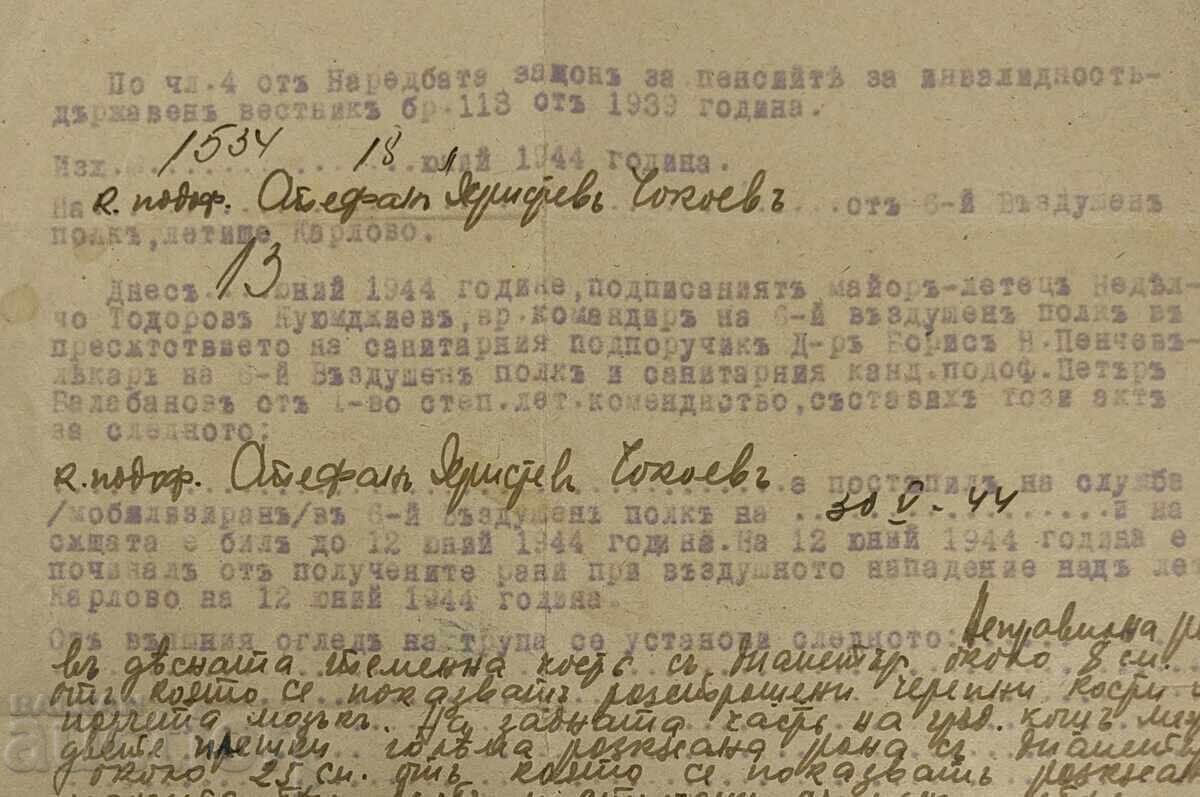 По чл.4 отъ Наредбата законъ за пенсиитѣ за инвалидность-
държавенъ вестникъ бр.113 отъ 1939 година.
Изх. 1534 18 юний 1944 година.
На к. подоф. Стефанъ Христевъ Чокоевъ отъ 6-й Въздушенъ
полкъ,летище Карлово.
Днесъ 13 юний 1944 године,подписаниятъ майоръ-летецъ Недѣл-
чо Тодоровъ Куюмджиевъ,вр.командиръ на 6-й въздушенъ полкъ въ
пресѫтствието на санитарния подпоручик Д-ръ Борисъ Н.Пенчевъ-
лѣкаръ на 6-й Въздушенъ полкъ и санитарния канд.подоф.Петъръ
Балабановъ отъ 1-во степ.лет.комендчство,съставихъ този актъ
за следното:
к. подоф. Стефанъ Христевъ Чокоевъ е постъпилъ на служба
/мобилизиранъ/въ 6-й Въздушенъ полкъ на 30 V - 44 и на
сѫщата е билъ до 12 юний 1944 година.На 12 юний 1944 година е
починалъ отъ получените рани при въздушното нападение надъ лет
Карлово на 12 юний 1944 година.
Отъ външния огледъ на трупа се установи следното: Неправилна
въ дѣсната теменна часть съ диаметъръ около 8 см.
отъ която се показватъ розмтрошени черепни кости
мозъкъ. На задната часть на грд. кошъ
голѣма розкъсана рана съ
около 25 см. отъ която се показватъ